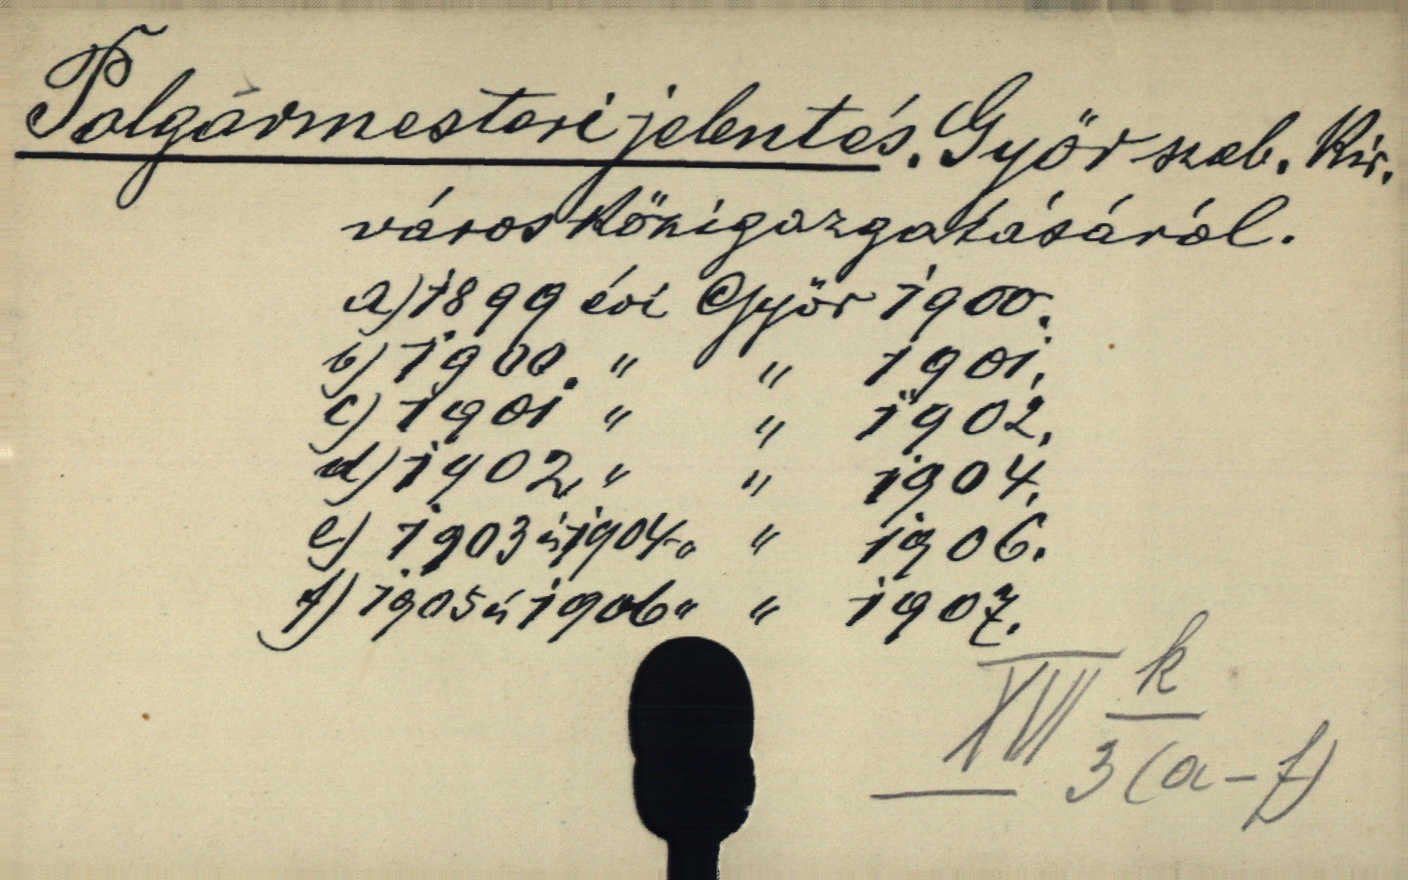 Polgármesteri jelentés. Győr szab. kir.
város közigazgatásáról.
a) 1899 évi Győr 1900.
b) 1900. " " 1901.
c) 1901 " " 1902.
d) 1902. " " 1904.
e) 1903 és 1904. " " 1906.
f) 1905 és 1906 " " 1907.
XVI k/3 (a-f)